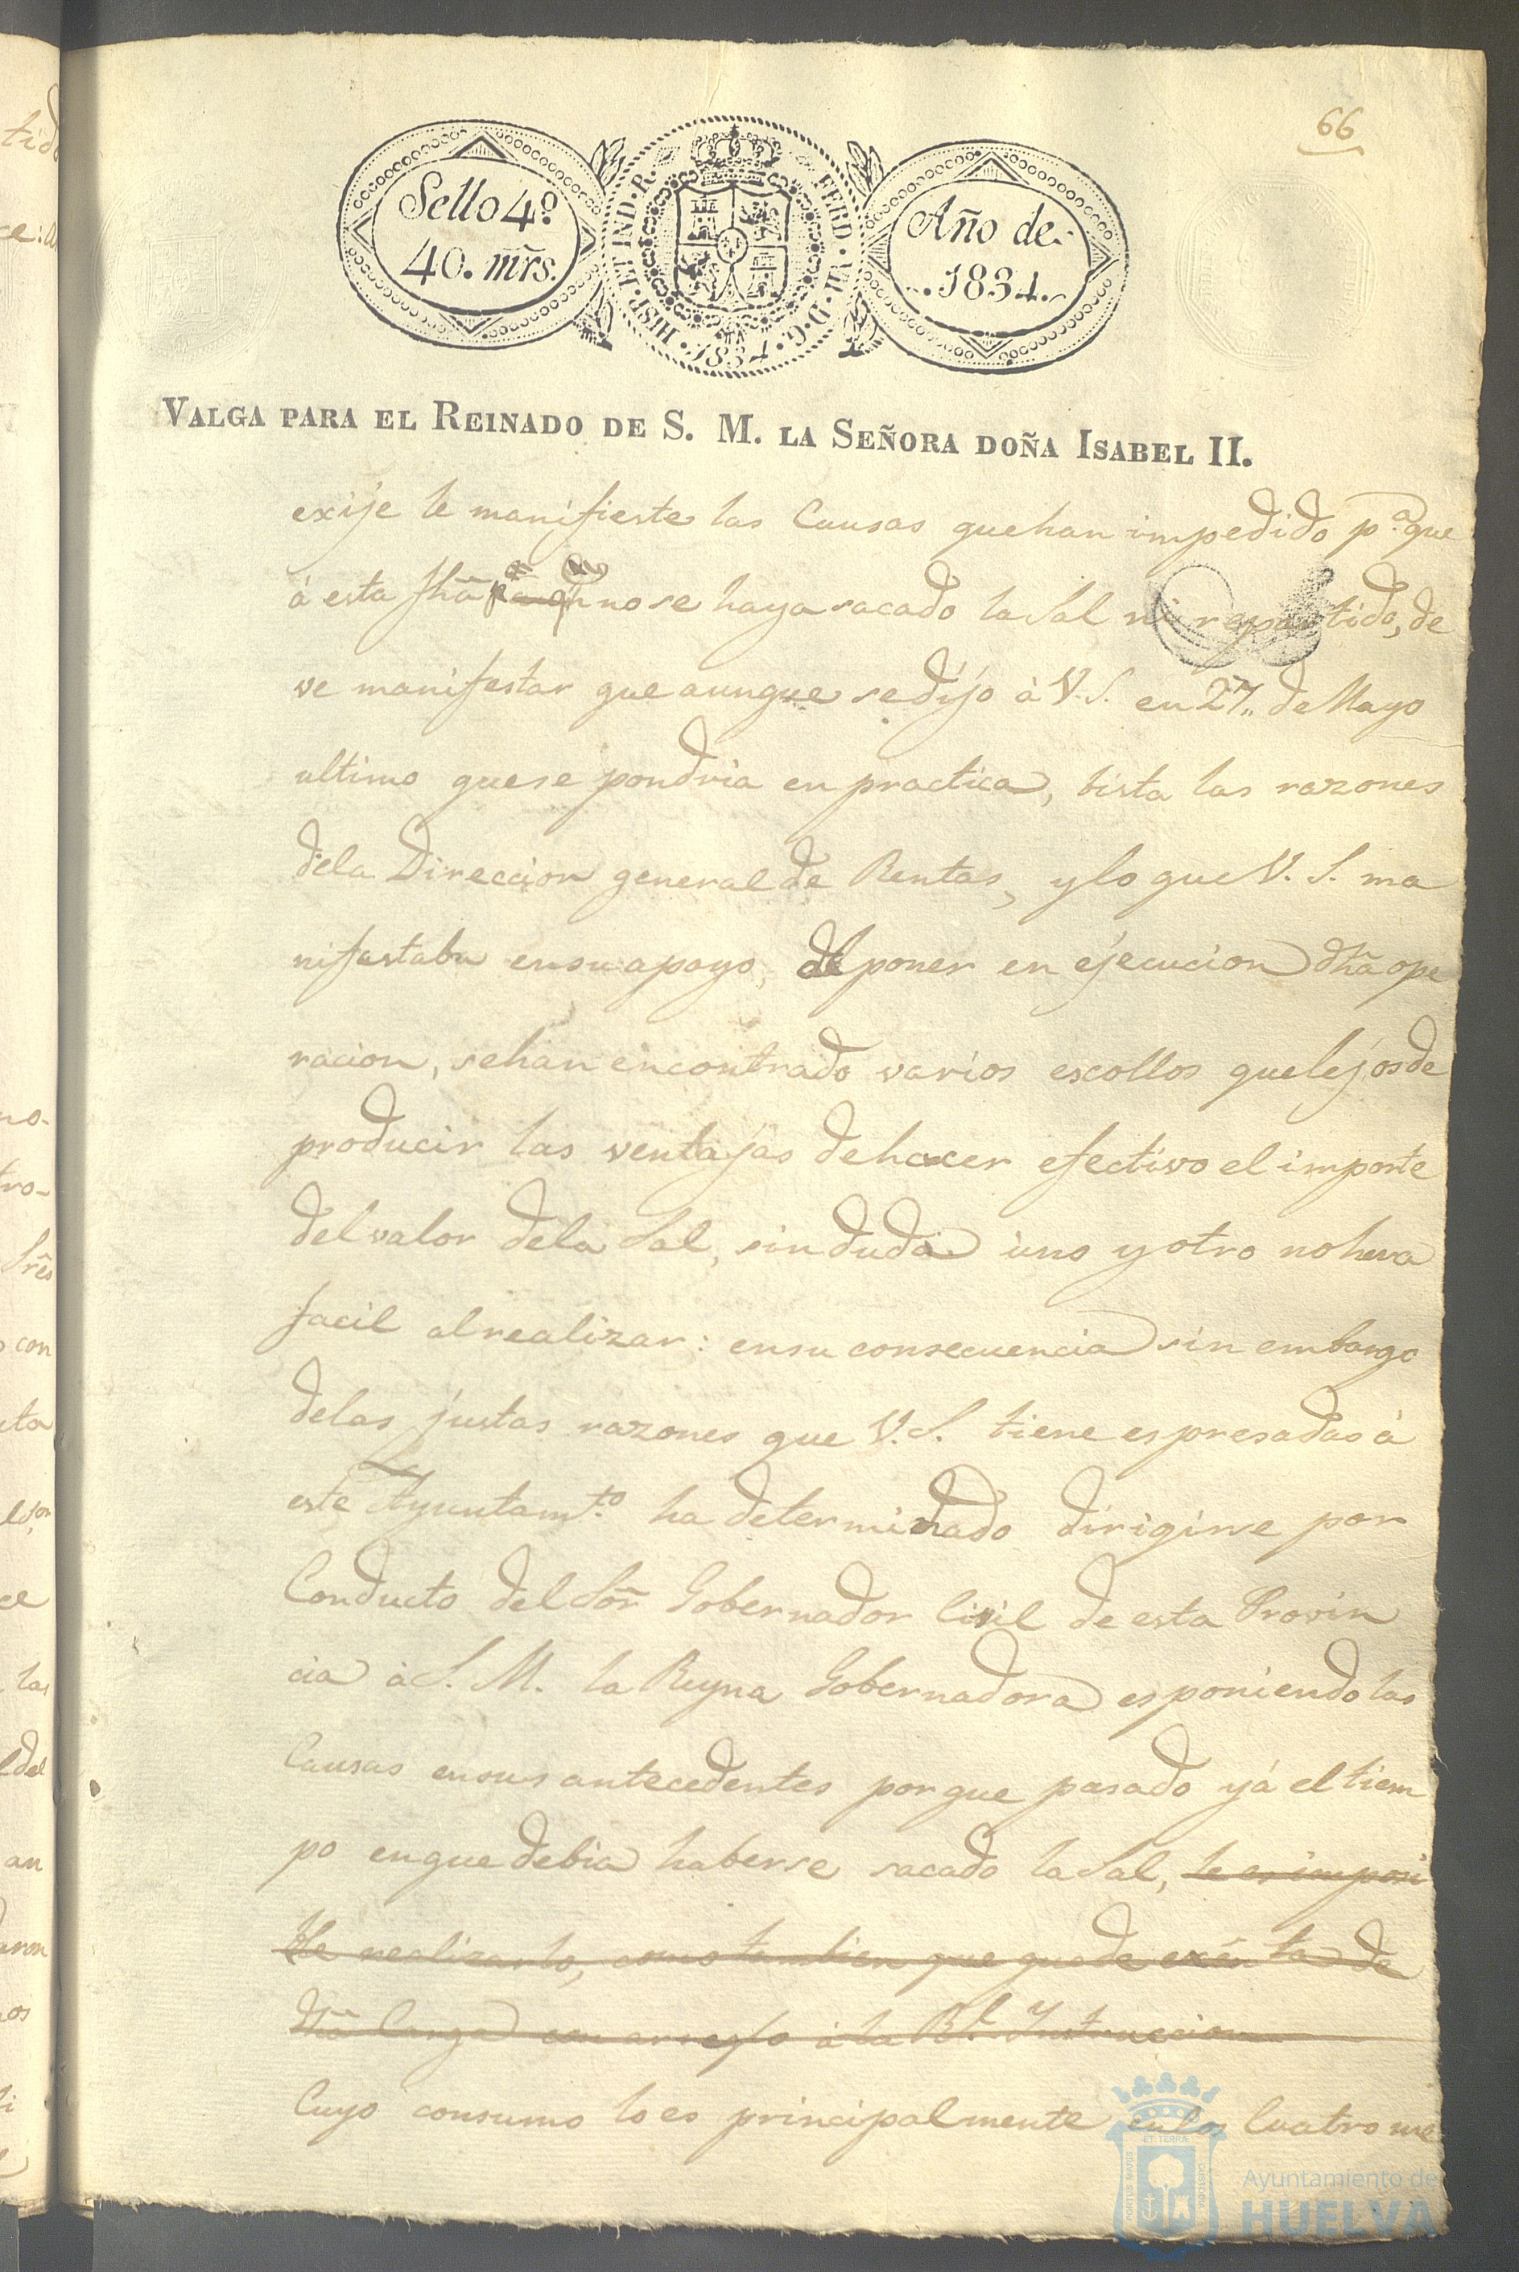 66
Sello 4º
40. mrs.
HISP. ET IND. R. FERD. VII. D. G. 1834.
Año de
1834.
VALGA PARA EL REINADO DE S. M. LA SEÑORA DOÑA ISABEL II.
exije le manifieste las Causas que han impedido p.ª que
á esta fhã no se haya sacado la Sal ni repartido, de
ve manifestar que aunque se dijo à V.S. en 27,, de Mayo
ultimo que se pondria en practica, bista las razones
dela Direccion general de Rentas, y lo que V. S. ma
nifestaba en su apoyo, al poner en ejecucion dhã ope
racion, se han encontrado varios escollos que lejos de
producir las ventajas de hacer efectivo el importe
del valor dela Sal, sin duda uno y otro no hera
facil al realizar: en su consecuencia sin embargo
delas justas razones que V.S. tiene espresadas à
este Ayuntam.to ha determinado dirigirse por
Conducto del Sõr Gobernador Civil de esta Provin
cia à S. M. la Reyna Gobernadora esponiendo las
Causas en sus antecedentes porque pasado yá el tiem
po en que debia haberse sacado la Sal, le es imposi
ble realizarlo, como tambien que quede exênta de
dhã Carga con arreglo à la Rl. Instruccion
Cuyo consumo lo es principalmente en los Cuatro me
Ayuntamiento de
HUELVA